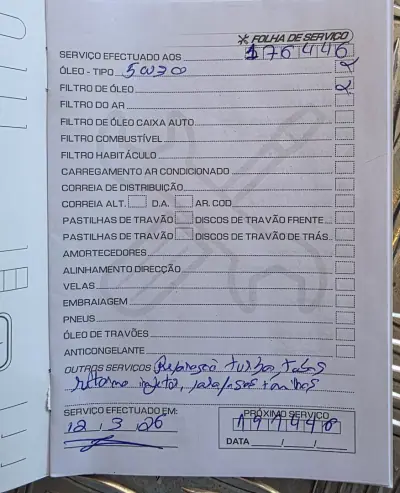 * FOLHA DE SERVIÇO
SERVIÇO EFECTUADO AOS 176446
ÓLEO - TIPO 5W30
FILTRO DE ÓLEO
FILTRO DO AR
FILTRO DE ÓLEO CAIXA AUTO.
FILTRO COMBUSTÍVEL
FILTRO HABITÁCULO
CARREGAMENTO AR CONDICIONADO
CORREIA DE DISTRIBUIÇÃO
CORREIA ALT. D.A. AR. COD
PASTILHAS DE TRAVÃO DISCOS DE TRAVÃO FRENTE
PASTILHAS DE TRAVÃO DISCOS DE TRAVÃO DE TRÁS
AMORTECEDORES
ALINHAMENTO DIRECÇÃO
VELAS
EMBRAIAGEM
PNEUS
ÓLEO DE TRAVÕES
ANTICONGELANTE
OUTROS SERVIÇOS Reparação turbo, tubos
retorno injetor,
SERVIÇO EFECTUADO EM: PRÓXIMO SERVIÇO
12, 3, 26
DATA / /